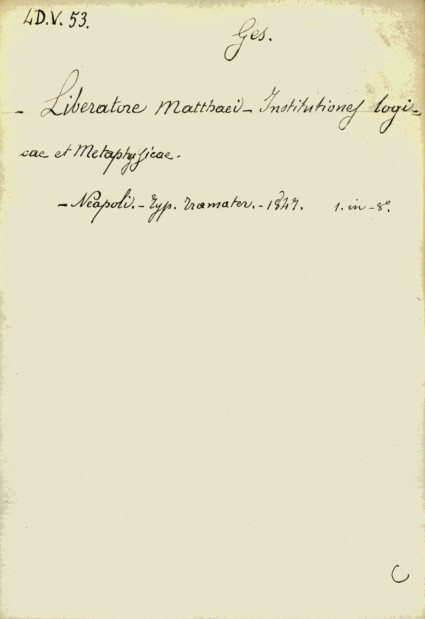 4D.V. 53.
Ges.
- Liberatore Matthaei - Institutiones logi=
cae et Metaphysicae.
- Neapoli. - Typ. Tramater. - 1847. 1. in - 8°.
C